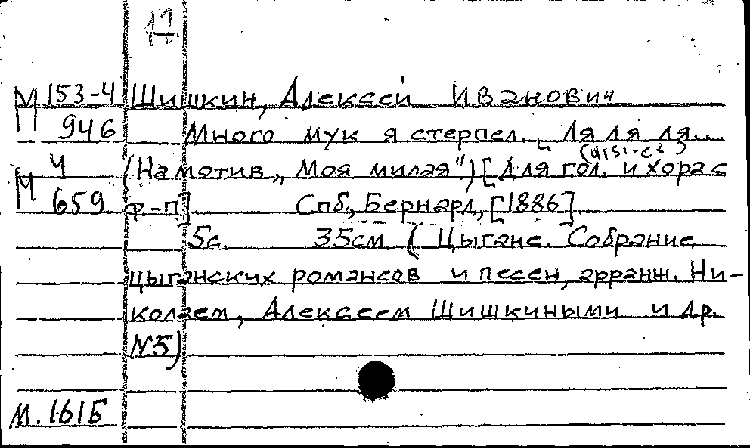 11
М 153-4 Шишкин, Алексей Иванович
946 Много мук я стерпел. Ля ля ля...
М 4 (На мотив „Моя милая") [Для гол. (dis1-e2) и хора с
659 ф-п] Спб, Бернард, [1886]
5с. 35см (Цыгане. Собрание
цыганских романсов и песен, арранж. Ни-
колаем, Алексеем Шишкиными и др.
N5)
М. 1615